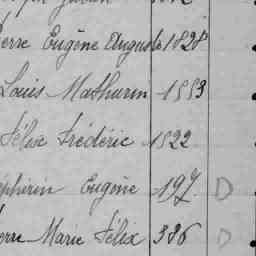 erre Eugène Auguste 1828
Louis Mathurin 1553
Félix Frédéric 1522
éphirin Eugène 197. D
erre Marie Félix 386 D